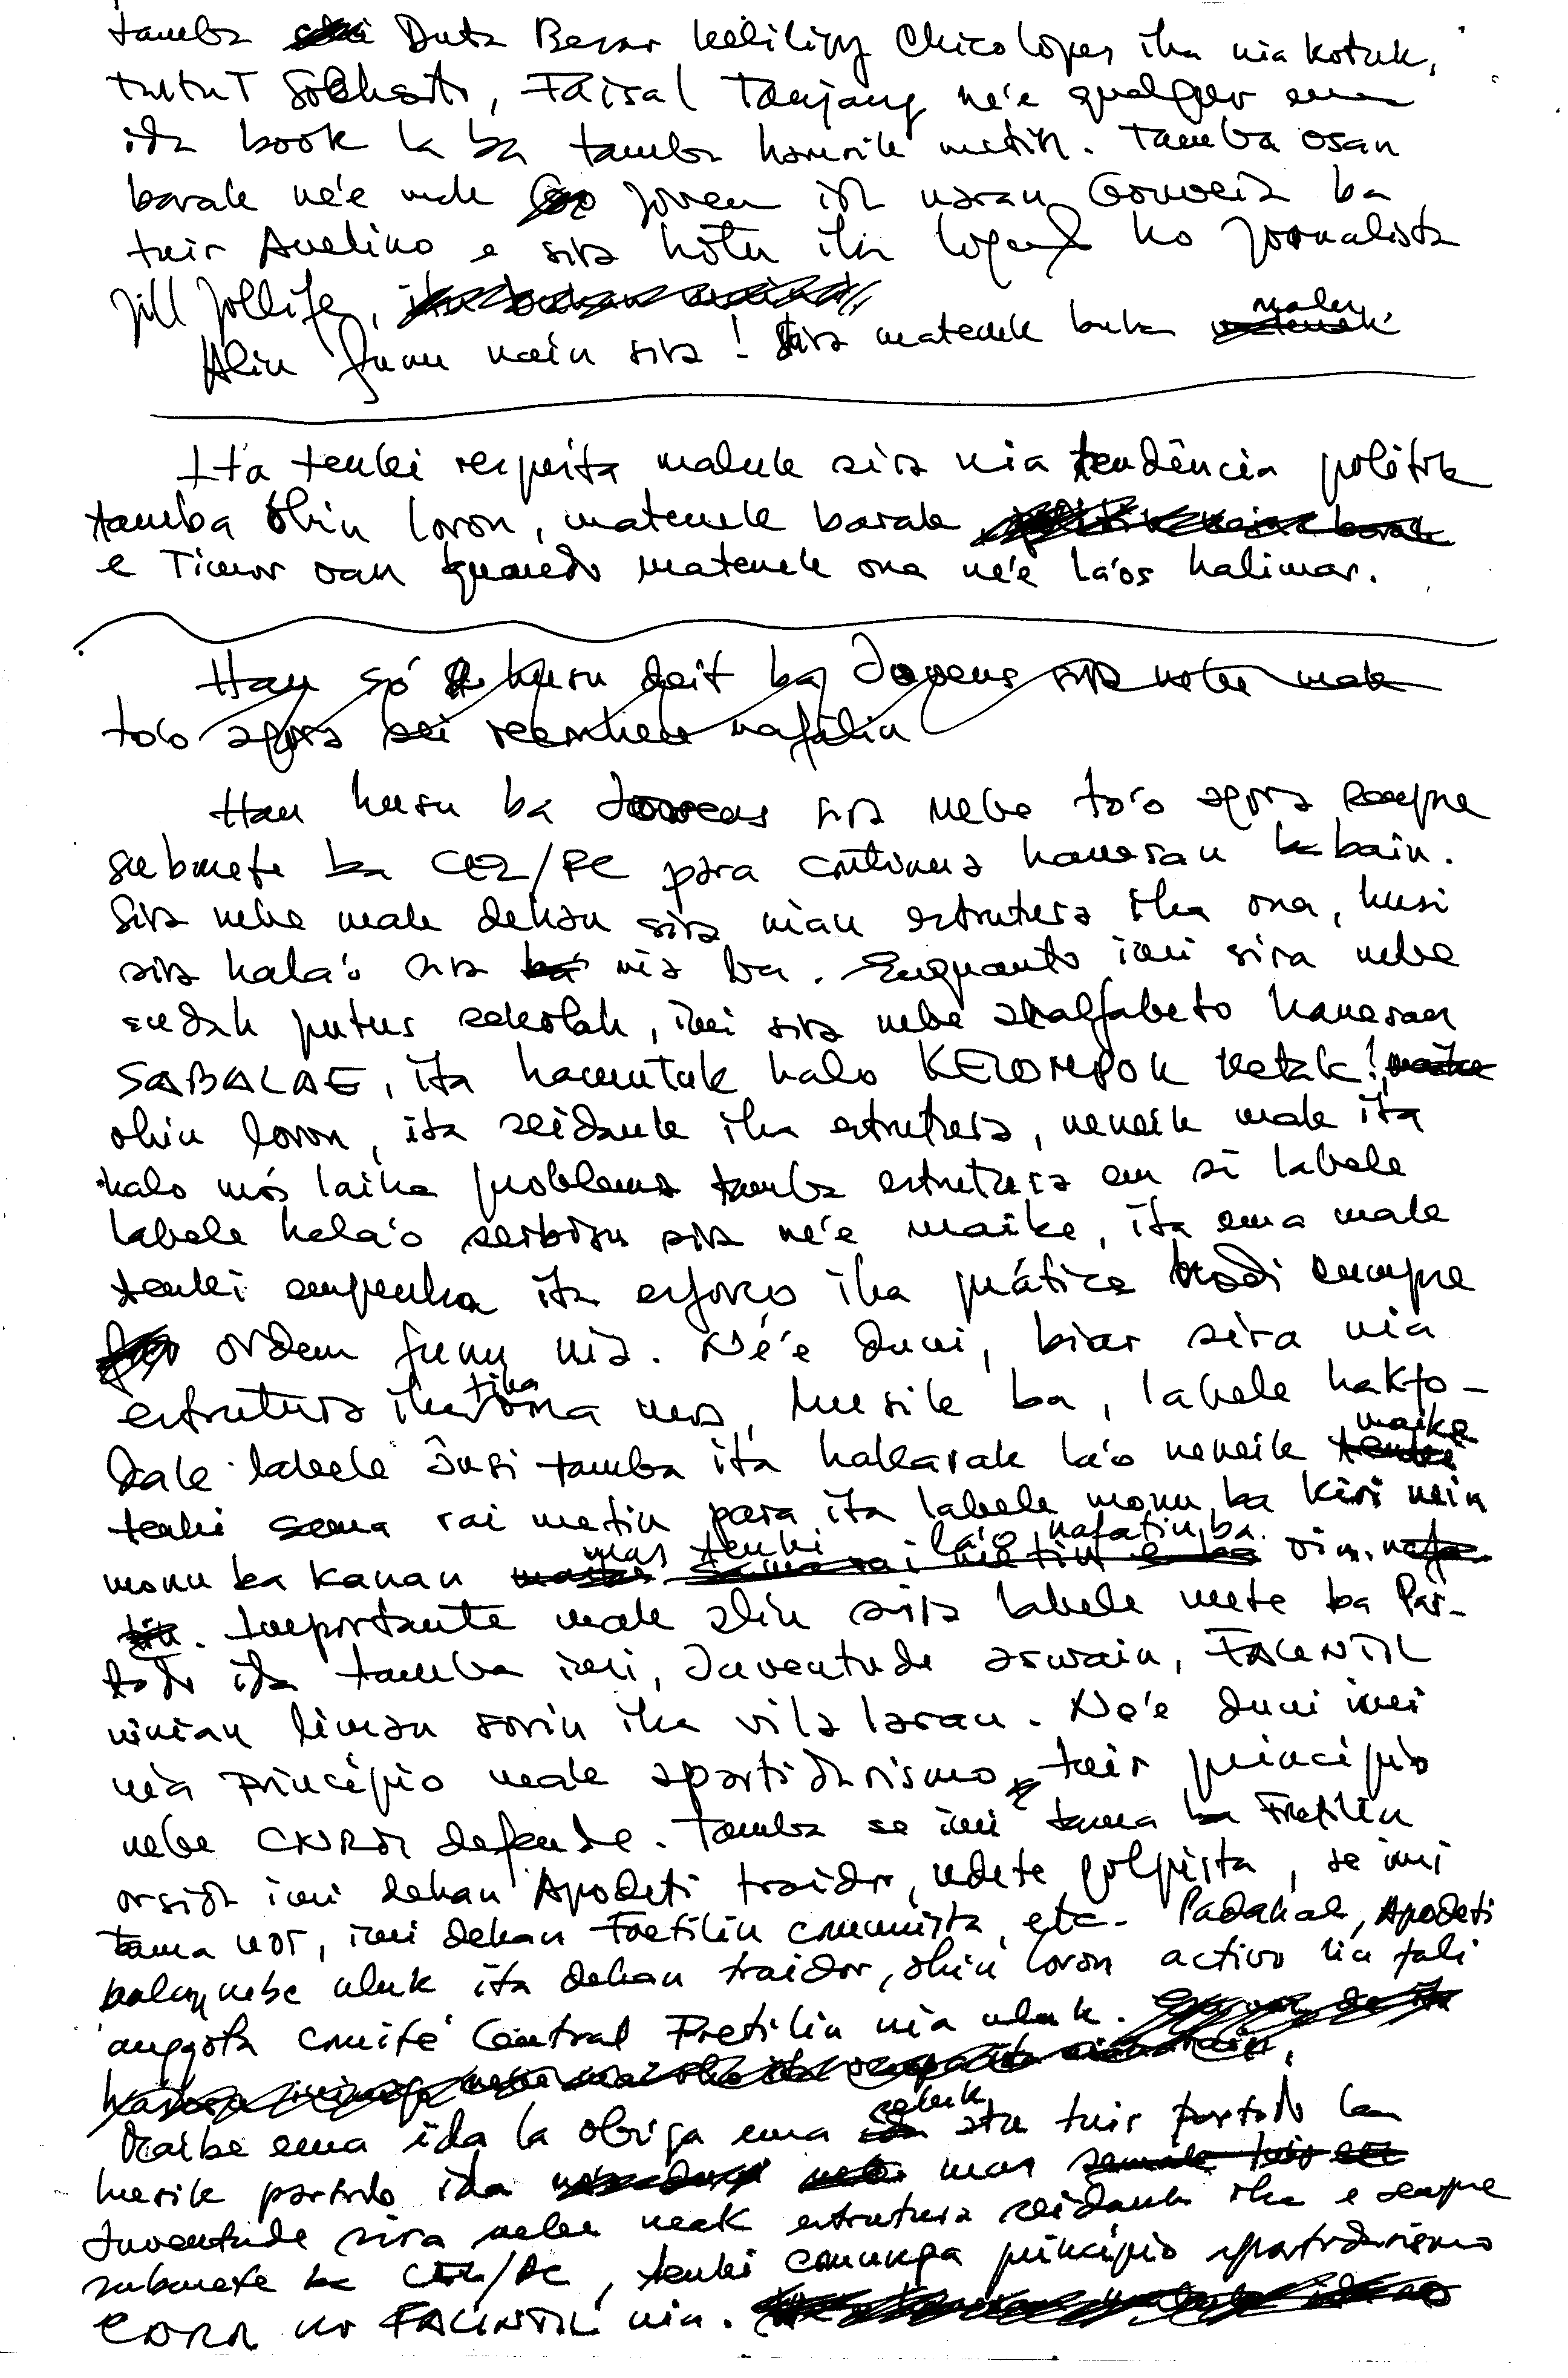 tamba Duta Besar keliling Chico Lopes iha nia kotuk,
Tutut Soeharto, Faisal Tanjang ne'e qualquer ema
ida book la ba tamba hamrik metin. Tamba osan
barak ne'e mak joven ida naran Gouveia ba
tuir Avelino e sira hotu iha ho jornalista
Jill Jollife,
Alin funu nain sira! Sira matenek buka malu
Ita tenki respeita maluk sira nia tendência politik
tamba ohin loron, matenek barak
e Timor oan quando matenek ona ne'e la'os halimar.
Hau só husu deit ba Jovens sira hotu mak
to'o agora sei reconhece nafatin
Hau husu ba Jovens sira nebe to'o agora sempre
submete ba CEL/FC para continua hanesan babain.
Sira nebe mak dehan sira nian estrutura iha ona, husi
sira hala'o sira nia ba. Enquanto imi sira nebe
sudah putus sekolah, imi sira nebe analfabeto hanesan
SABALAE, ita hamutuk halo KELOMPOK ketak!
ohin loron, ita seidauk iha estrutura, neneik mak ita
halo mós laiha problema tamba estrutura em si labele
labele hala'o serbisu sira ne'e maibe, ita ema mak
tenki empenha ita esforco iha prática hodi cumpre
ordem funu nia. Ne'e duni, biar sira nia
estrutura iha tiha ona mos, husik ba, labele hakfo-
dak labele ansi tamba ita hakarak la'o neneik maibe
tenki sama rai metin para ita labele monu ba kiri nein
monu ba kanan mas tenki la'o nafatin ba oin.
Importante mak alin sira labele mete ba Par-
tido ida tamba imi, Juventude aswain, FALINTIL
ninian liman sorin iha vila laran. Ne'e duni imi
nia princípio mak apartidarismo tuir princípio
nebe CNRM defende. Tamba se imi tama ba Fretilin
orsida imi dehan Apodeti traidor, udete golpista, se imi
tama UDT, imi dehan Fretilin comunista, etc. Padahal, Apodeti
balun nebe uluk ita dehan traidor, ohin loron activo liu fali
anggota comité Central Fretilin nia uluk.
Maibe ema ida la obriga ema seluk atu tuir partido ka
husik partido ida mas
Juventude sira nebe neak estrutura seidauk iha e sempre
submete ba CEL/FC, tenki comunga princípio apartidarismo
CNRM no FALINTIL nia.